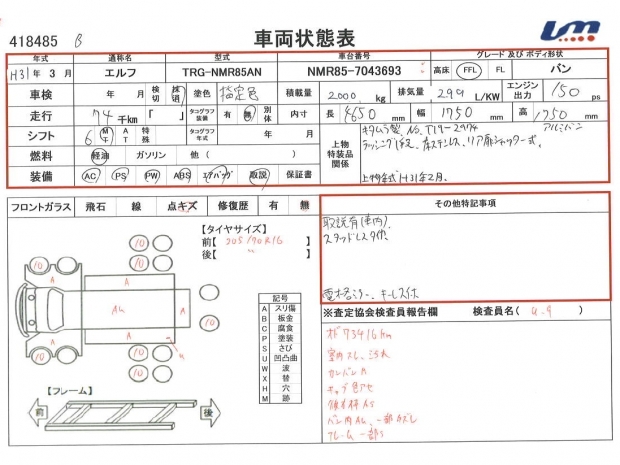 418485 B 車両状態表
年式 通称名 型式 車台番号 グレード及びボディ形状
H31年 3月 エルフ TRG-NMR85AN NMR85-7043693 高床 FFL FL バン
車検 年 月 検切 抹消 塗色 指定色 積載量 2000 kg 排気量 299 L/KW エンジン出力 150 ps
走行 74 千km 「 」 タコグラフ装備 有 無 別体 内寸 長 4650 mm 幅 1750 mm 高 1750 mm
シフト 6 MT AT 特殊 タコグラフ年式 年 月 上物特装品関係 キタムラ製 No. T19-2974 アルミバン
ラッシング1段、床ステンレス、リア扉シャッター式。
燃料 軽油 ガソリン 他( )
装備 AC PS PW ABS エアバッグ 取説 保証書 上物年式H31年2月。
フロントガラス 飛石 線 点キズ 修復歴 有 無
その他特記事項
取説有(車両)
スタッドレスタイヤ
電格ミラー、キーレス付
【タイヤサイズ】
前【 205/70R16 】
後【 〃 】
10 10 10 10 10 10
A A A A AU
記号
A スリ傷
B 板金
C 腐食
P 塗装
S さび
U 凹凸曲
W 波
X 替
H 穴
M 跡
※査定協会検査員報告欄 検査員名( )
73416km
室内スレ、汚れ
キャブ色アセ
バン内AU、一部カズレ
フレーム一部S
【フレーム】
前 後